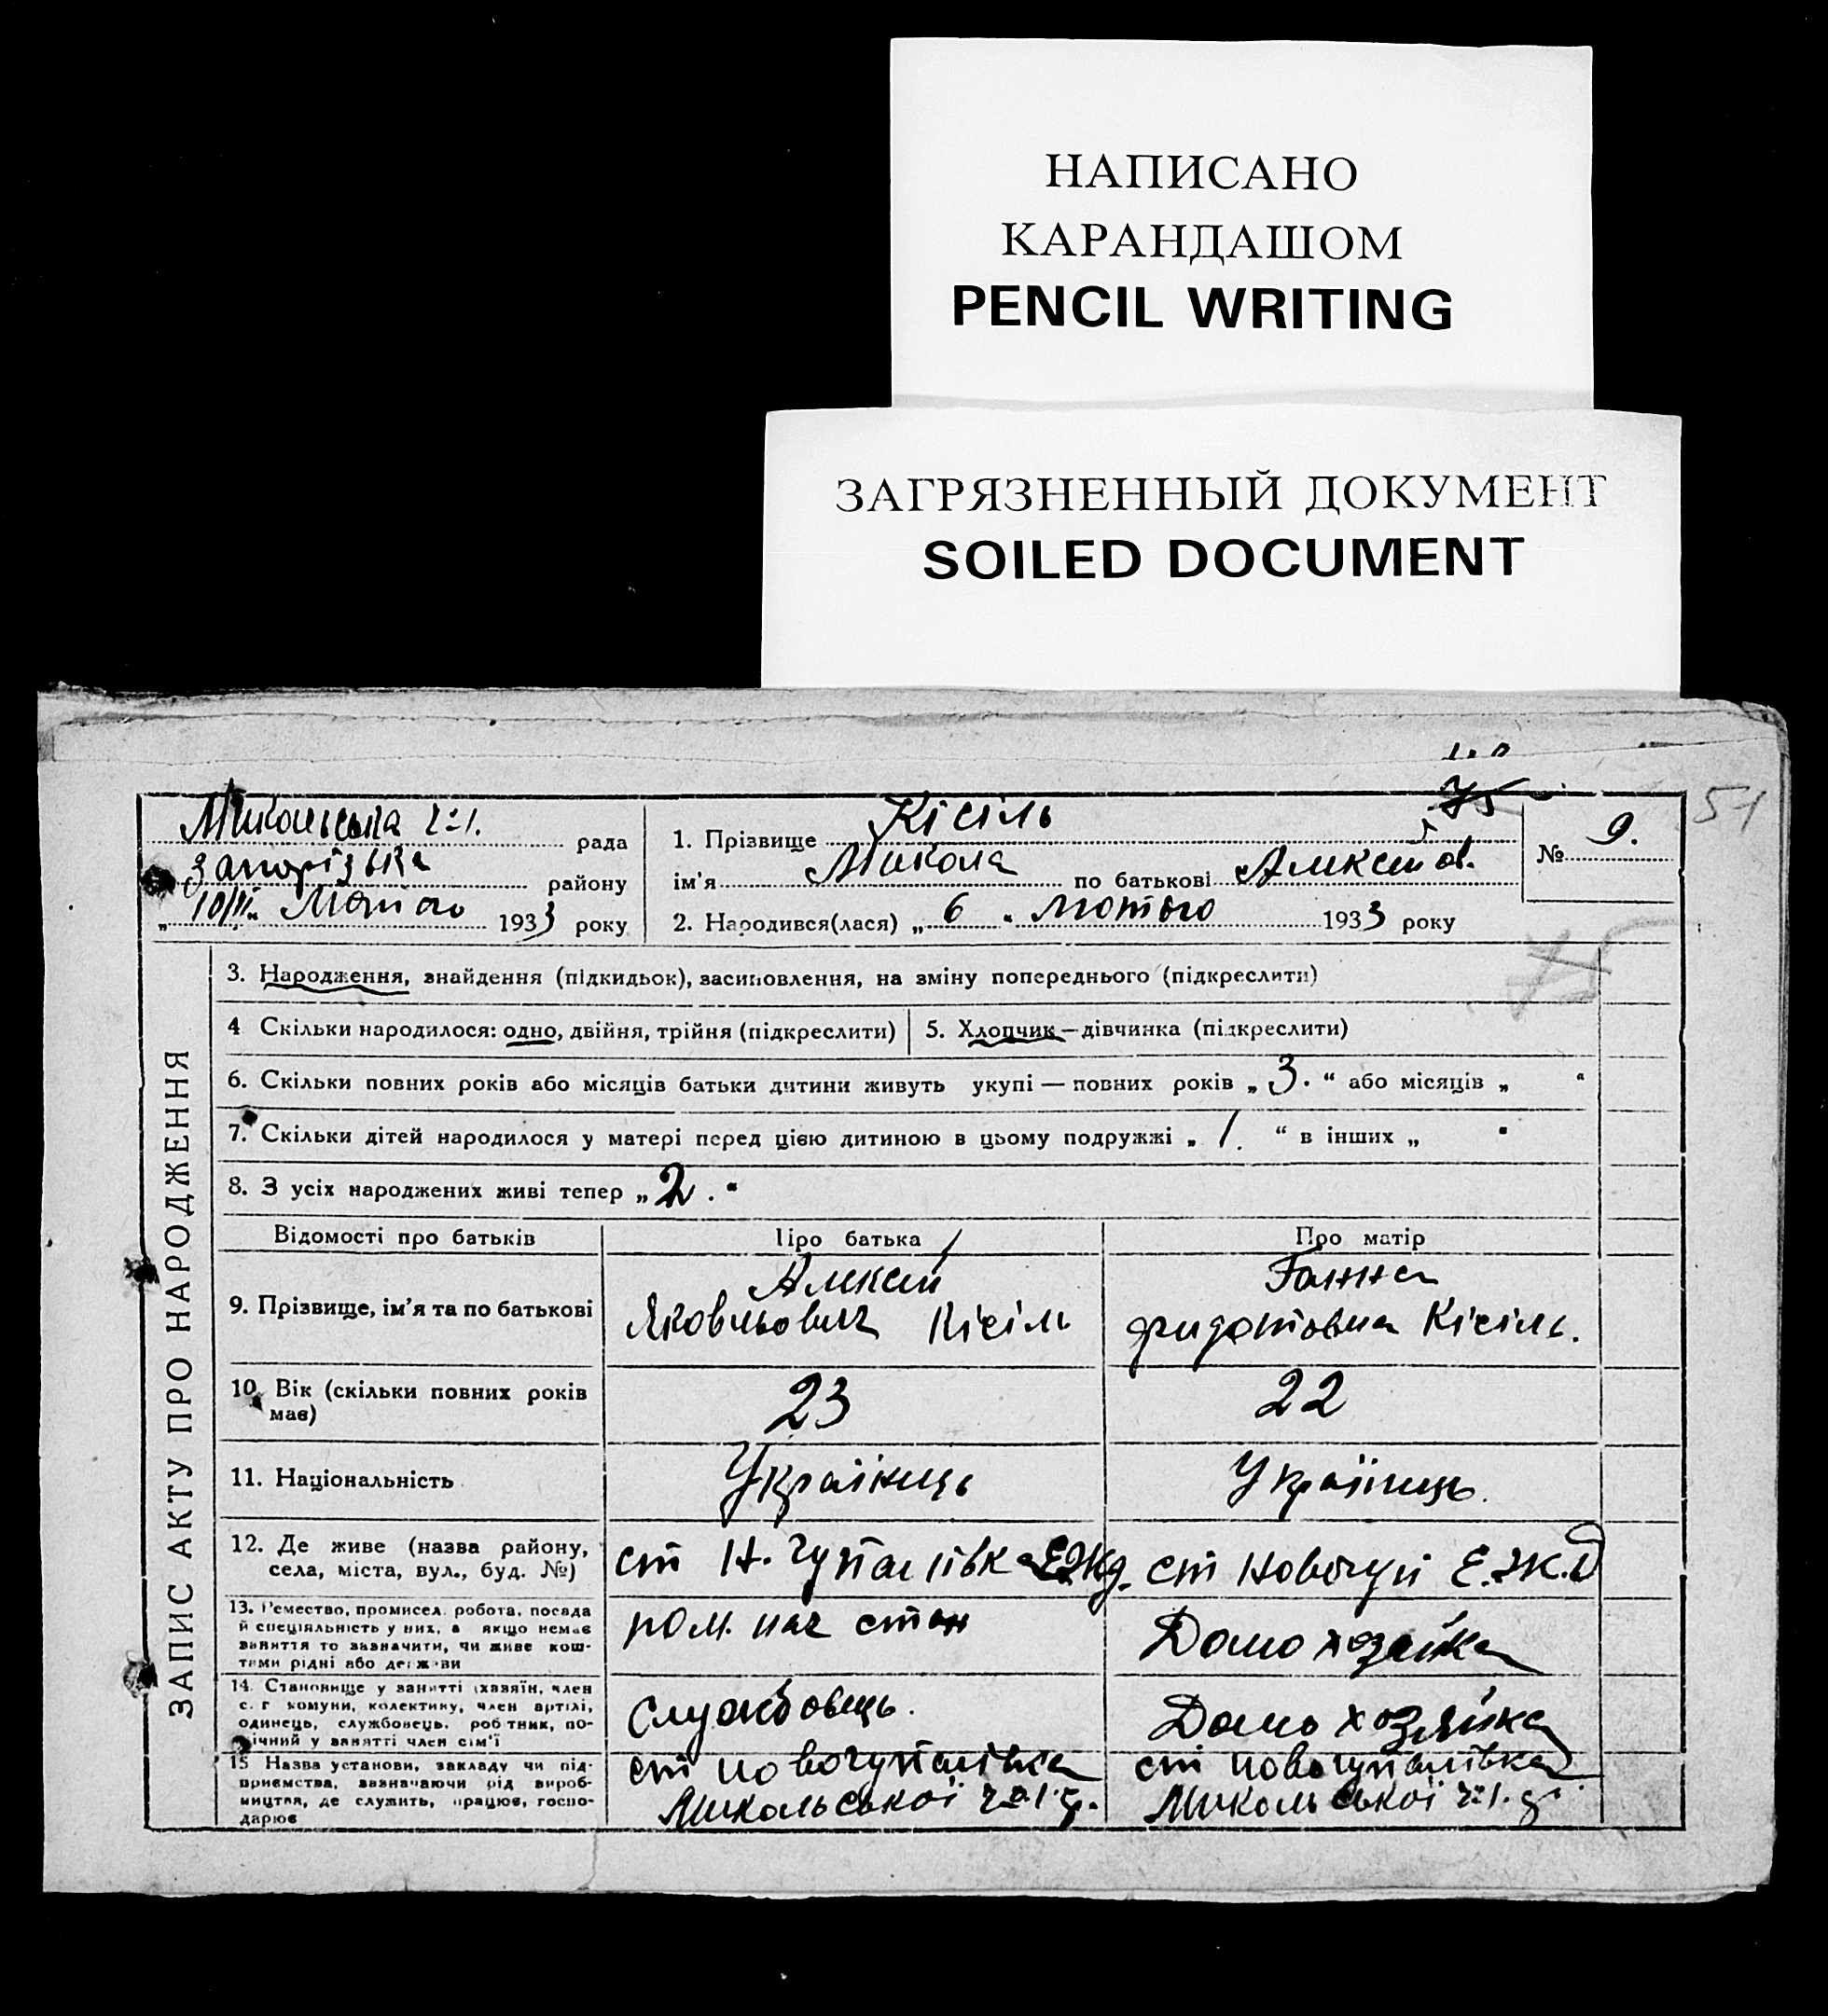 НАПИСАНО
КАРАНДАШОМ
PENCIL WRITING
ЗАГРЯЗНЕННЫЙ ДОКУМЕНТ
SOILED DOCUMENT
75
51
Микольська рада
Запорізька району
„10/II“ Лютого 1933 року
1. Прізвище Кісіль
ім'я Микола по батькові Алексеїов.
2. Народився(лася) „6“ Лютого 1933 року
№ 9.
75
ЗАПИС АКТУ ПРО НАРОДЖЕННЯ
3. Народження, знайдення (підкидьок), засиновлення, на зміну попереднього (підкреслити)
4 Скільки народилося: одно, двійня, трійня (підкреслити)
5. Хлопчик—дівчинка (підкреслити)
6. Скільки повних років або місяців батьки дитини живуть укупі — повних років „3.“ або місяців „ “
7. Скільки дітей народилося у матері перед цією дитиною в цьому подружжі „1.“ в інших „ “
8. З усіх народжених живі тепер „2.“
Відомості про батьків
Про батька
Про матір
9. Прізвище, ім'я та по батькові
Алексій
Яковльович Кісіль
Ганна
Кісіль.
10. Вік (скільки повних років
має)
23
22
11. Національність
Українець
Українець.
12. Де живе (назва району,
села, міста, вул., буд. №)
ст Н. Гупалівка
ст Новогуп Е.Ж.Д
13. Ремество, промисел, робота, посада
й спеціяльність у них, а якщо немає
заняття то зазначити, чи живе кош-
тами рідні або держави
пом. нач стан
Домохозяйка
14. Становище у занятті (хазяїн, член
с. г комуни, колективу, член артілі,
одинець, службовець, робітник, по-
мічний у занятті член сім'ї
Службовець.
Домохозяйка
15 Назва установи, закладу чи під-
приємства, зазначаючи рід вироб-
ництва, де служить, працює, госпо-
дарює
ст новогупалівка
Микольської
ст новогупалівка
Микольської